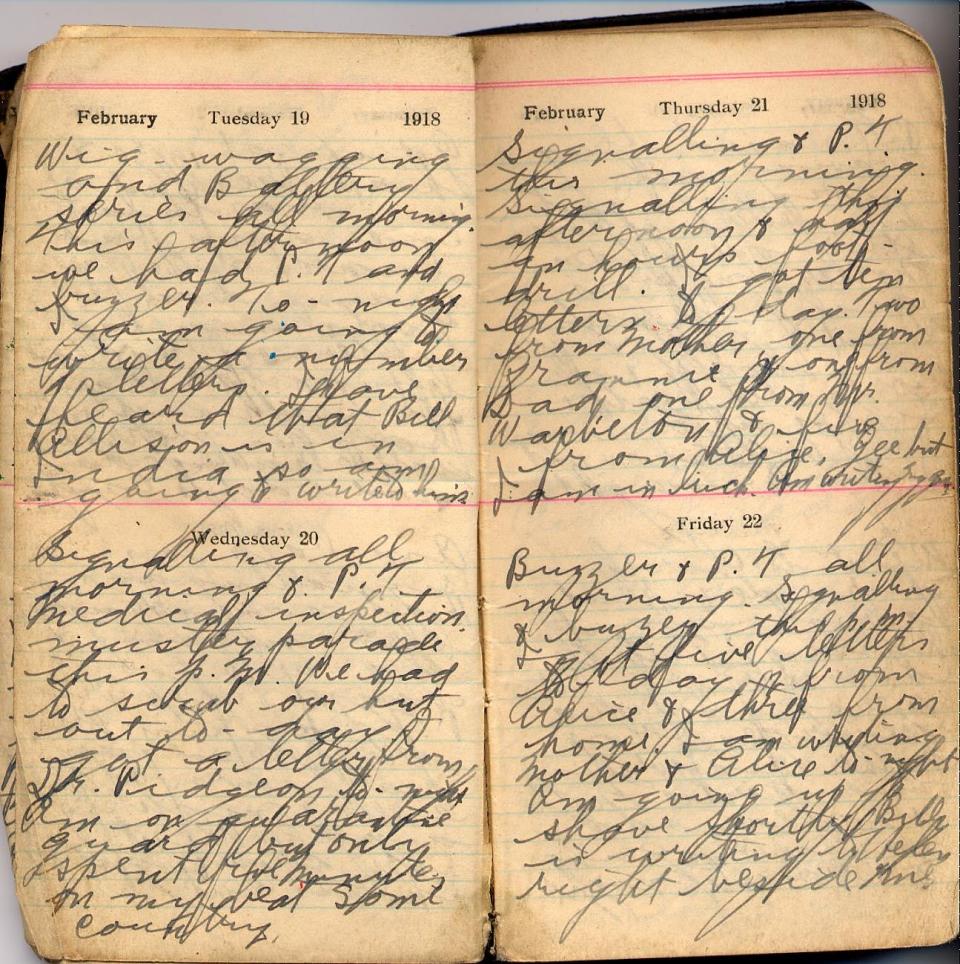 February Tuesday 19 1918
Wig-wagging
and Battery
series all morning.
This afternoon
we had P.T and
buzzer. To-night
I am going to
write a number
of letters. I have
heard that Bill
Allison is in
India so am
going to write to him
Wednesday 20
Signalling all
morning & P.T
medical inspection
muster parade
this P.M. We had
to scrub our hut
out to-day. I
got a letter from
Dr. Pidgeon to-night
Am on quarantine
guard but only
spent five minutes
on my beat Some
country.
February Thursday 21 1918
Signalling & P.T
this morning.
Signalling this
afternoon & half
an hours foot-
drill. I got ten
letters to day. Two
from Mother, one from
Grannie & one from
Dad one from Mr.
Warbelton & five
from Alice. Gee but
I am in luck. Am writing
Friday 22
Buzzer & P.T all
morning. Signalling
& buzzer this P.M.
I got five letters
to day from
Alice & three from
home. I am writing
Mother & Alice to-night
Am going to
shave shortly. Bill
is writing
right beside me